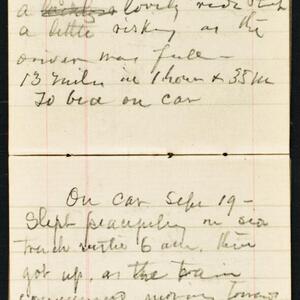 a lovely ride but
a little risky as the
driver was full –
13 miles in 1 hour & 35 m
To bed on car
On car Sept 19 –
Slept peacefully on
until 6 am. then
got up, as the train
commenced moving